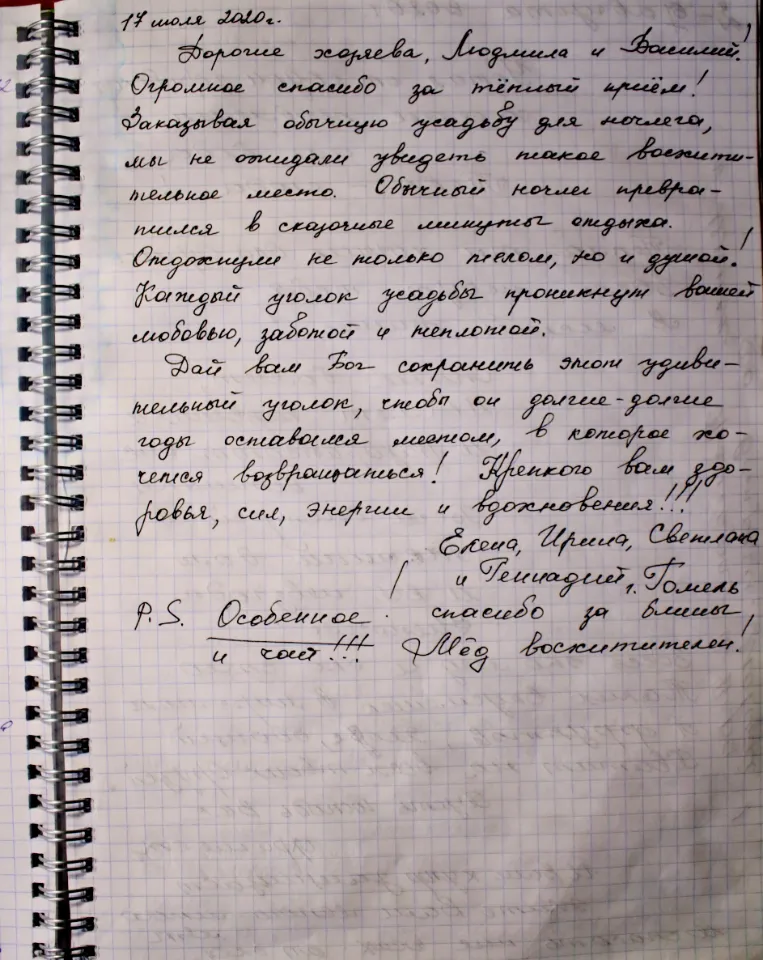 17 июля 2020г.
Дорогие хозяева, Людмила и Василий!
Огромное спасибо за тёплый приём!
Заказывая обычную усадьбу для ночлега,
мы не ожидали увидеть такое восхити-
тельное место. Обычный ночлег превра-
тился в сказочные минуты отдыха.
Отдохнули не только телом, но и душой!
Каждый уголок усадьбы проникнут вашей
любовью, заботой и теплотой.
Дай вам Бог сохранить этот удиви-
тельный уголок, чтобы он долгие-долгие
годы оставался местом, в которое хо-
чется возвращаться! Крепкого вам здо-
ровья, сил, энергии и вдохновения!!!
Елена, Ирина, Светлана
и Геннадий, г. Гомель
P.S. Особенное спасибо за блины
и чай!!! Мёд восхитителен!